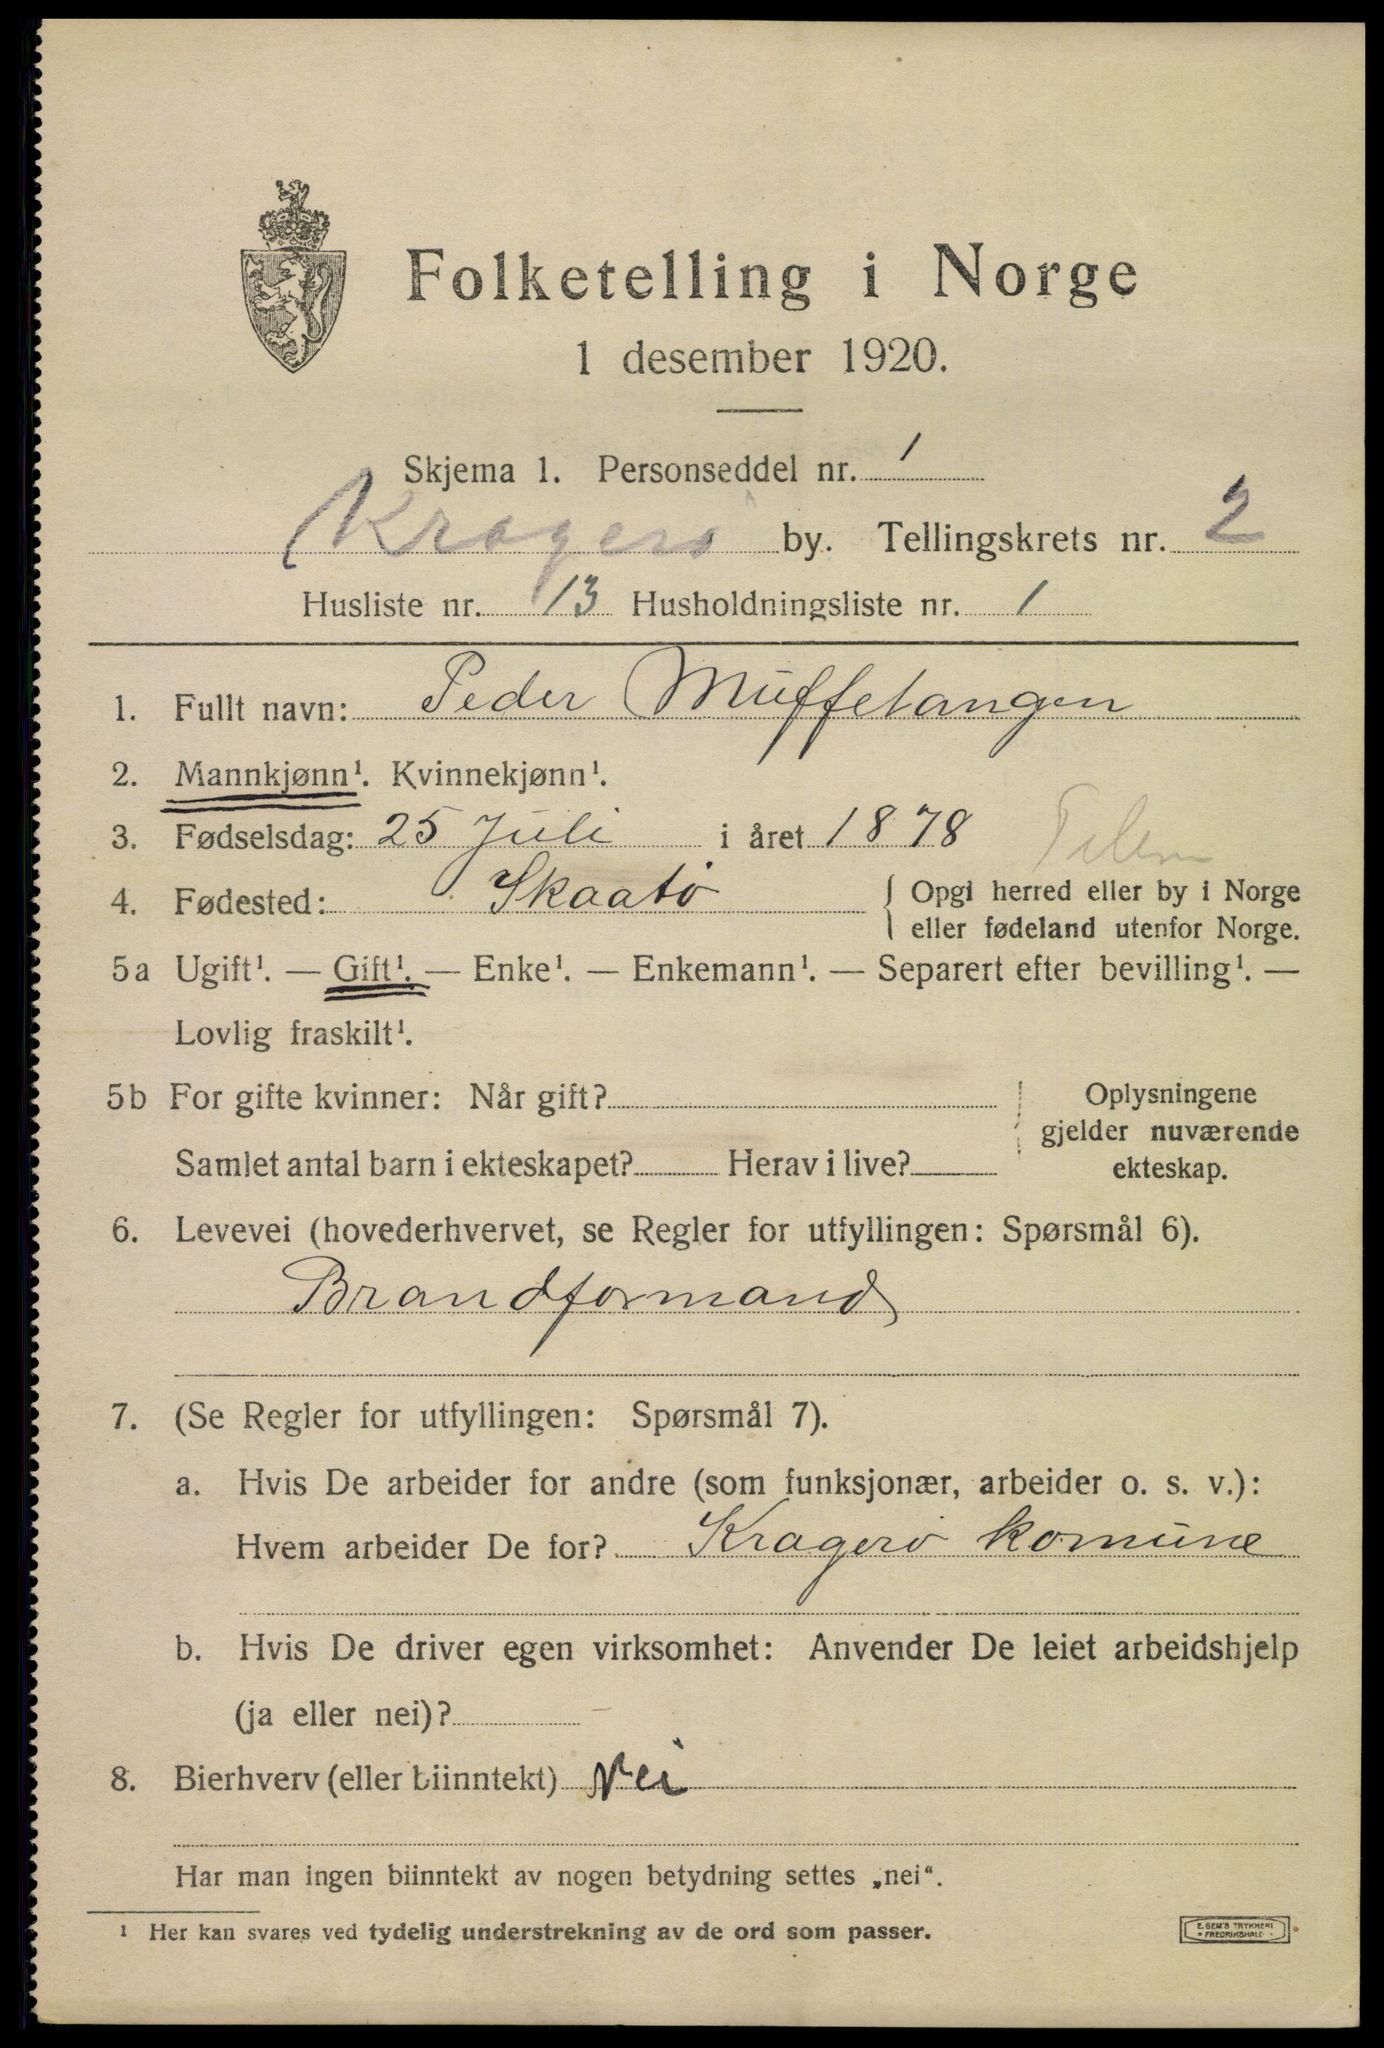 Folketelling i Norge
1 desember 1920.
Skjema 1. Personseddel nr. 1
Kragerø by. Tellingskrets nr. 2
Husliste nr. 13 Husholdningsliste nr. 1
1. Fullt navn: Peder Muffetangen
2. Mannkjønn¹. Kvinnekjønn¹.
3. Fødselsdag: 25 Juli i året 1878 Telem
4. Fødested: Skaatø { Opgi herred eller by i Norge
eller fødeland utenfor Norge.
5a Ugift¹. — Gift¹. — Enke¹. — Enkemann¹. — Separert efter bevilling¹. —
Lovlig fraskilt¹.
5b For gifte kvinner: Når gift? Oplysningene
gjelder nuværende
Samlet antal barn i ekteskapet? Herav i live? ekteskap.
6. Levevei (hovederhvervet, se Regler for utfyllingen: Spørsmål 6).
Brandformand
7. (Se Regler for utfyllingen: Spørsmål 7).
a. Hvis De arbeider for andre (som funksjonær, arbeider o. s. v.):
Hvem arbeider De for? Kragerø komune
b. Hvis De driver egen virksomhet: Anvender De leiet arbeidshjelp
(ja eller nei)?
8. Bierhverv (eller biinntekt) Nei
Har man ingen biinntekt av nogen betydning settes „nei“.
¹ Her kan svares ved tydelig understrekning av de ord som passer.
E. SEM'S TRYKKERI
• FREDRIKSHALD •